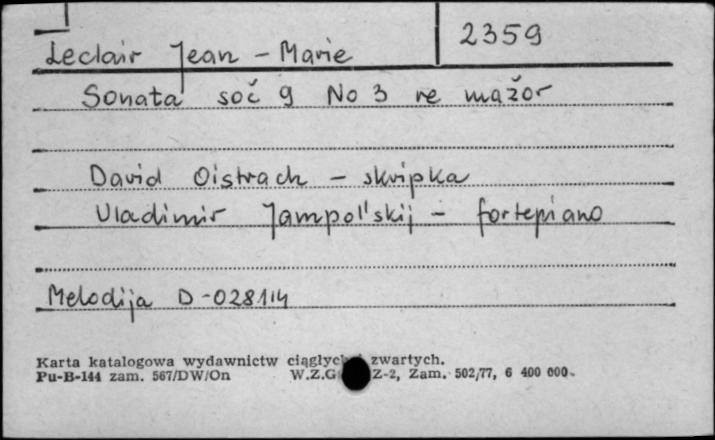 Leclair Jean - Marie 2359
Sonata soč 9 No 3 re mažor
David Oistrach - skripka
Vladimir Jampol'skij - fortepiano
Melodija D-028114
Karta katalogowa wydawnictw zwartych.
Pu-B-144 zam. 567/DW/On W.Z.G Z-2, Zam. 502/77, 6 400 000